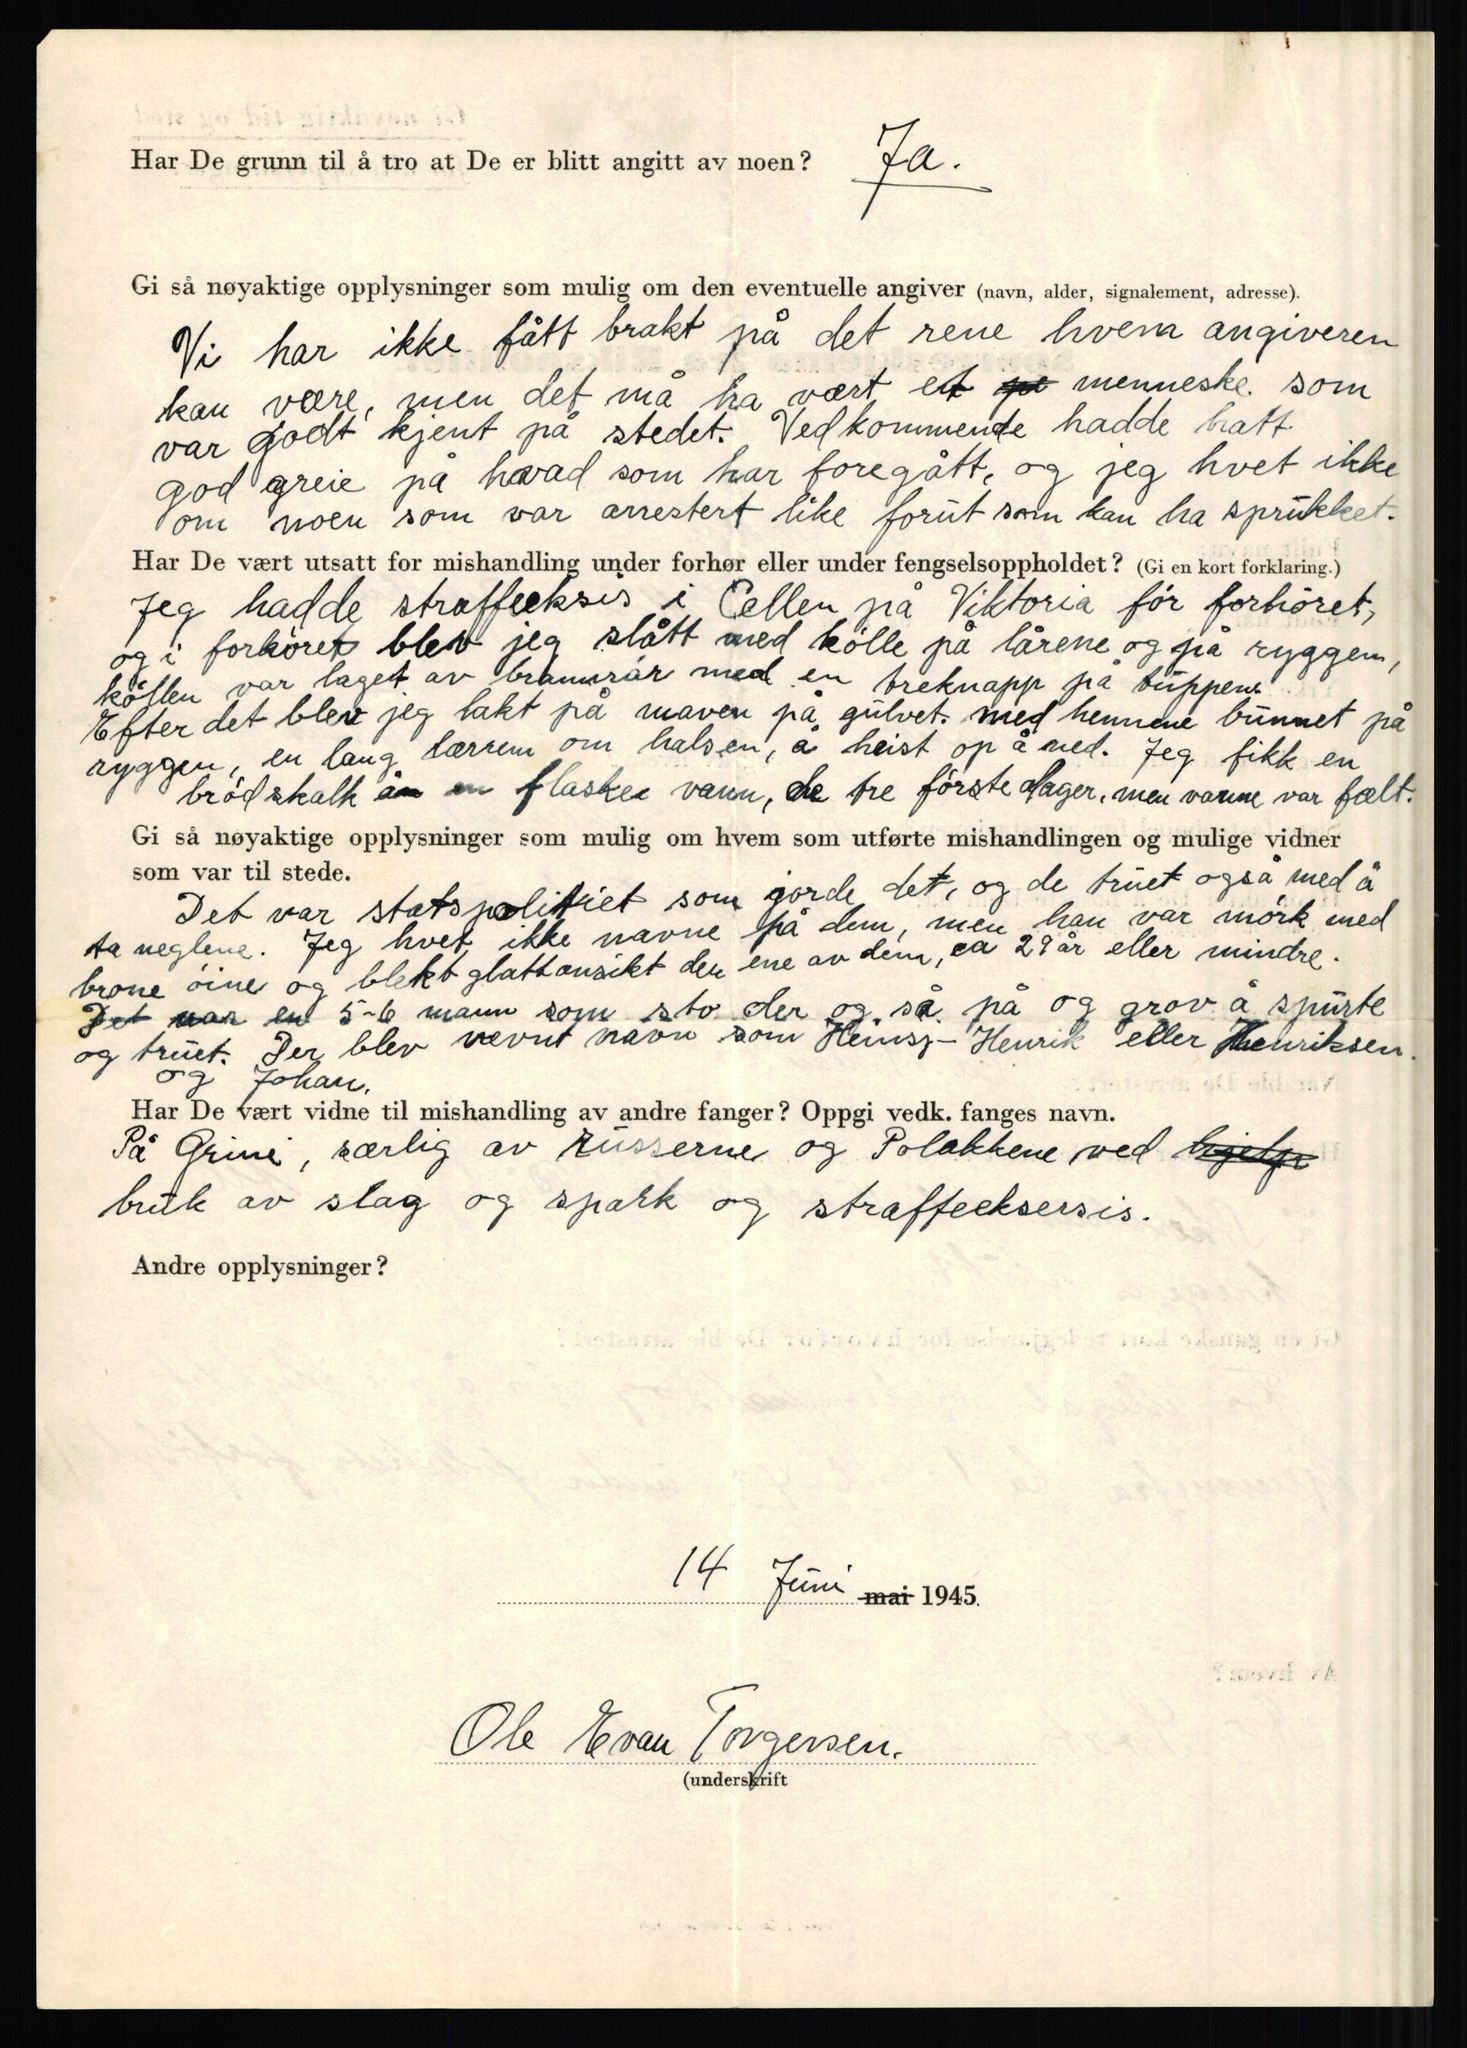 Har De grunn til å tro at De er blitt angitt av noen? Ja.
Gi så nøyaktige opplysninger som mulig om den eventuelle angiver (navn, alder, signalement, adresse).
Vi har ikke fått brakt på det rene hvem angiveren
kan være, men det må ha vært et menneske som
var godt kjent på stedet. Vedkommende hadde hatt
god greie på hvad som har foregått, og jeg hvet ikke
om noen som var arrestert like forut som kan ha sprukket.
Har De vært utsatt for mishandling under forhør eller under fengselsoppholdet? (Gi en kort forklaring.)
Jeg hadde straffeeksis i Cellen på Viktoria før forhøret,
og i forhøret blev jeg slått med kølle på lårene og på ryggen,
køllen var laget av med en treknapp på tuppene
Efter det blev jeg lakt på maven på gulvet. med hennene bunnet på
ryggen, en lang lærrem om halsen, å heist op å ned. Jeg fikk en
brødskalk å en flaske vann, de tre første dager, men vanne var fælt.
Gi så nøyaktige opplysninger som mulig om hvem som utførte mishandlingen og mulige vidner
som var til stede.
Det var statspolitiet som jorde det, og de truet også med å
ta neglene. Jeg hvet ikke navne på dem, men han var mørk med
brone øine og blekt glattansikt den ene av dem, ca 29 år eller mindre.
Det var en 5-6 mann som sto der og så på og grov å spurte
og truet. Der blev nevnt navn som Heinsz- Henrik eller Henriksen.
og Johan.
Har De vært vidne til mishandling av andre fanger? Oppgi vedk. fanges navn.
På Grini, særlig av russerne og Polakkene ved hjelp
bruk av slag og spark og straffeeksersis.
Andre opplysninger?
14 Juni mai 1945
Ole Evan Torgersen.
(underskrift